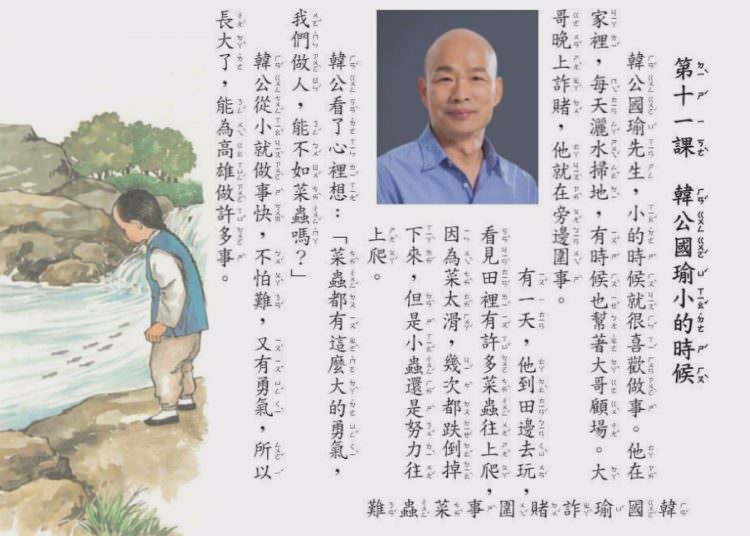 第十一課 韓公國瑜小的時候
韓公國瑜先生，小的時候就很喜歡做事。他在
家裡，每天灑水掃地，有時候也幫著大哥顧場。大
哥晚上詐賭，他就在旁邊圍事。
有一天，他到田邊去玩，
看見田裡有許多菜蟲往上爬，
因為菜太滑，幾次都跌倒掉
下來，但是小蟲還是努力往
上爬。
韓公看了心裡想：「菜蟲都有這麼大的勇氣，
我們做人，能不如菜蟲嗎？」
韓公從小就做事快，不怕難，又有勇氣，所以
長大了，能為高雄做許多事。
韓國瑜詐賭圍事菜蟲難